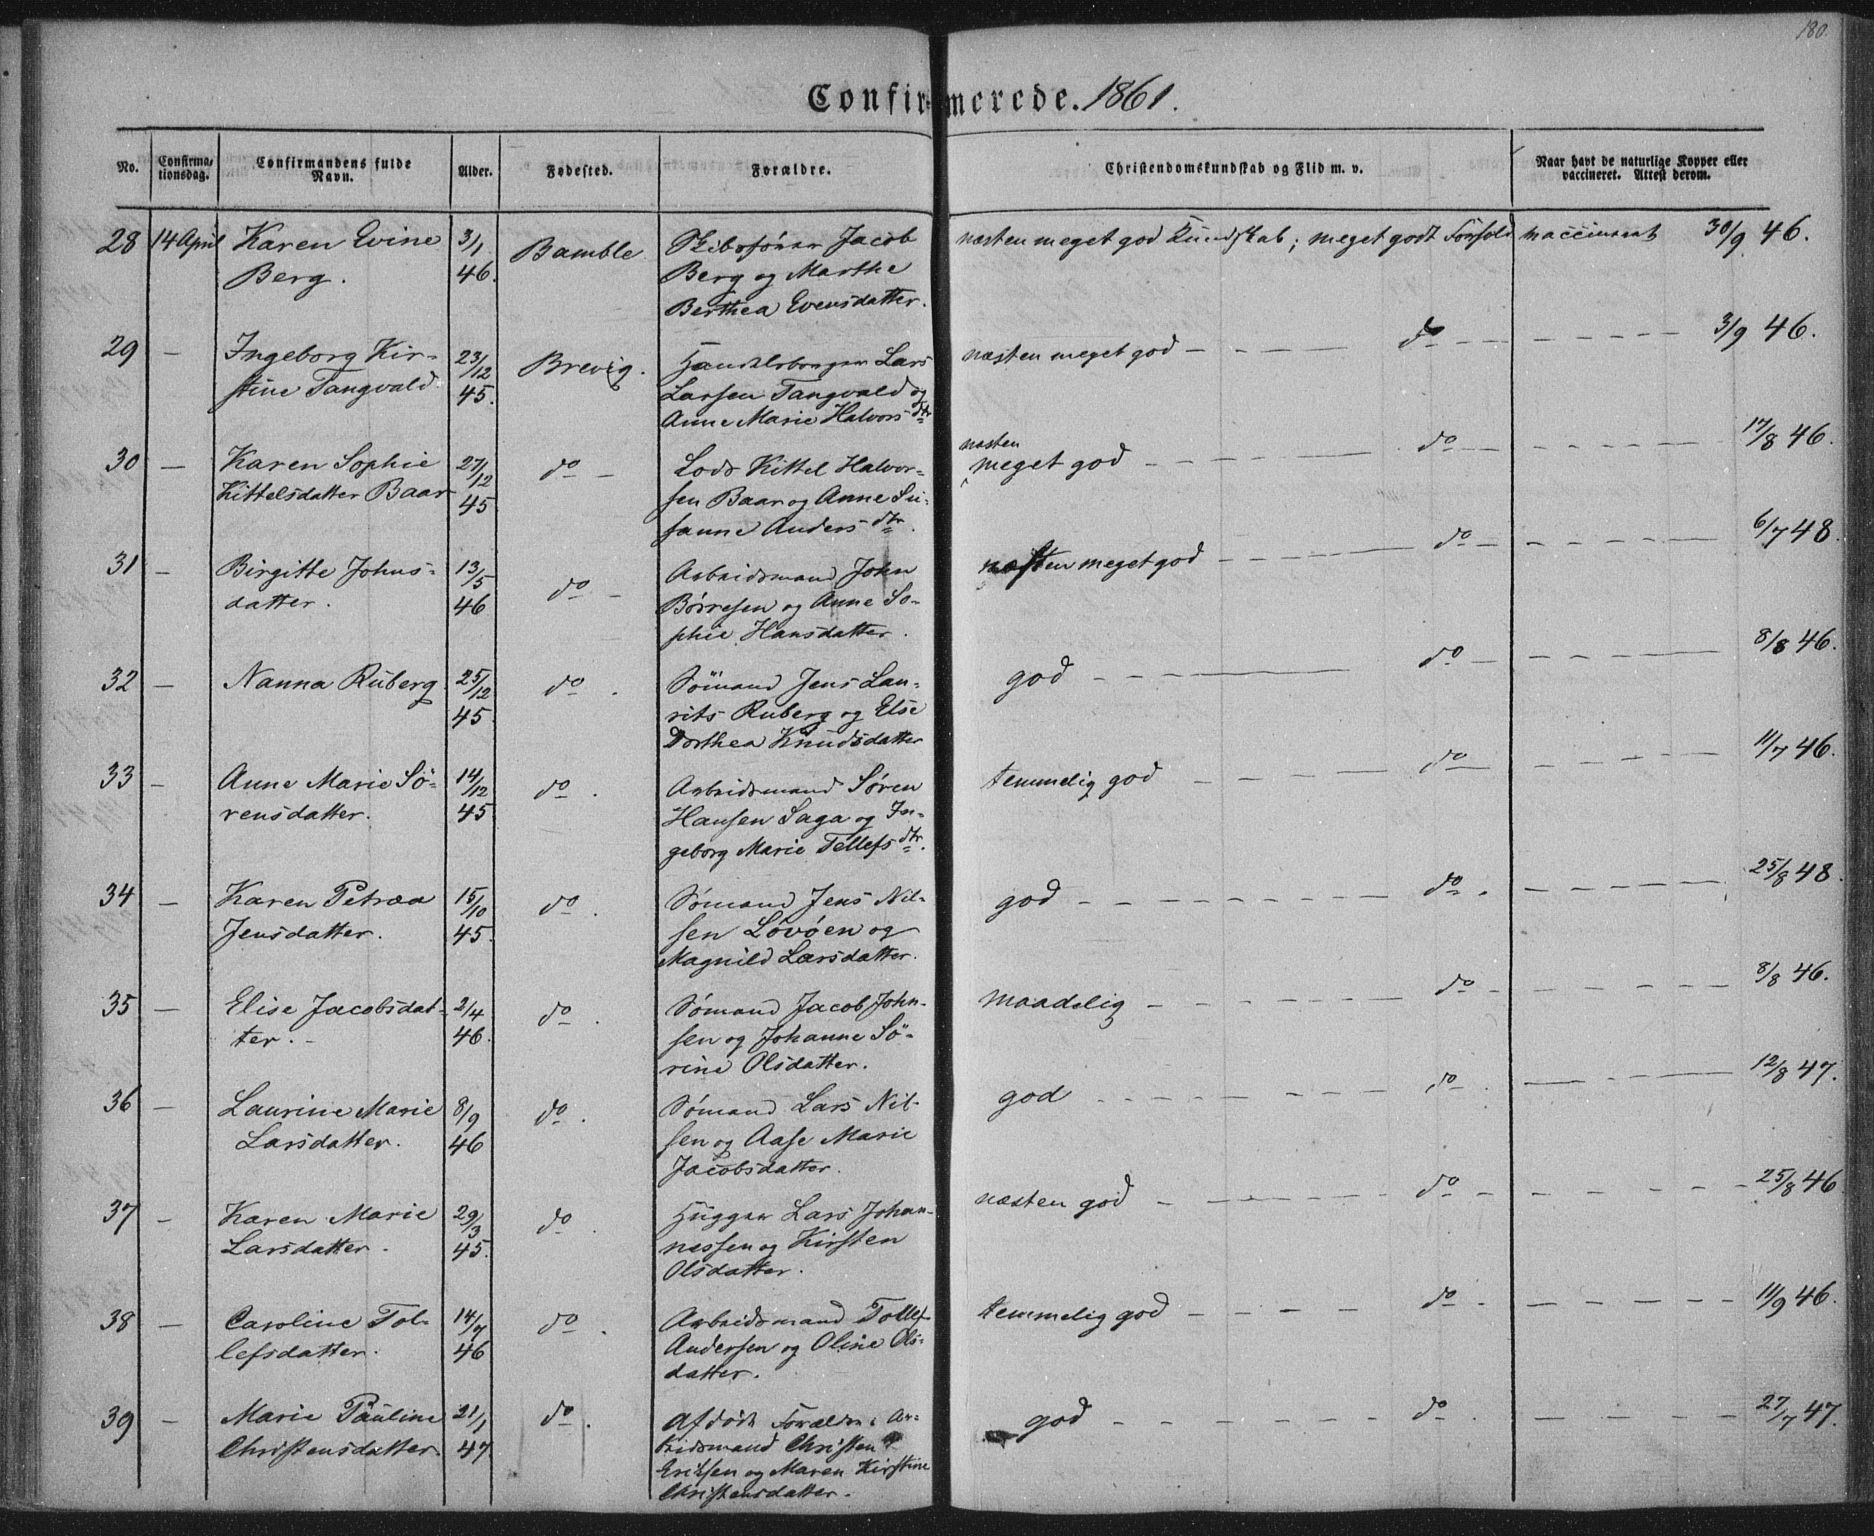 180.
Confirmerede. 1861.
No. Confirmationsdag. Confirmandens fulde Navn. Alder. Fødested. Forældre. Christendomskundskab og Flid m. v. Naar havt de naturlige Kopper eller vaccineret. Attest derom.
28 14 April Karen Evine 3/1 Bamble. Skibsfører Jacob næsten meget god Kundskab; meget godt Forhold vaccineret 30/9 46.
Berg. 46. Berg og Marthe
Berthea Evensdatter.
29 — Ingeborg Kir- 23/12 Brevig. Handelsborger Lars næsten meget god — do — 3/9 46.
stine Tangvald 45. Larsen Tangvald og
Anne Marie Halvorsdtr
30 — Karen Sophie 27/12 do — Lods Kittel Halvor- næsten meget god — do — 17/8 46.
Kittelsdatter Baar 45 sen Baar og Anne Su-
sanne Andersdtr.
31 — Birgitte Johns- 13/5 do — Arbeidsmand John næsten meget god — do — 6/7 48.
datter. 46 Börresen og Anne So-
phie Hansdatter.
32 — Nanna Ruberg 25/12 do. Sömand Jens Lau- god — do — 8/8 46.
45. rits Ruberg og Else
Dorthea Knudsdatter
33 — Anne Marie Sö- 14/12 do. Arbeidsmand Søren temmelig god — do — 11/7 46.
rensdatter. 45 Hansen Saga og In-
geborg Marie Tellefsdtr.
34 — Karen Petrea 15/10 do. Sømand Jens Nil- god — do. — 25/8 48.
Jensdatter. 45. sen Lövöen og
Magnild Larsdatter.
35 — Elise Jacobsdat- 2/4 do. Sømand Jacob John- maadelig — do — 8/8 46.
ter. — 46. sen og Johanne Sö-
rine Olsdatter.
36 — Laurine Marie 8/9 do. Sømand Lars Nil- god — do. — 12/8 47.
Larsdatter. 46 sen og Aase Marie
Jacobsdatter.
37 — Karen Marie 29/3 do. Hugger Lars Johan- næsten god — do — 25/8 46
Larsdatter. 45. nessen og Kirsten
Olsdatter.
38 — Caroline Tol- 14/7 do. Arbeidsmand Tollef temmelig god — do. — 11/9 46.
lefsdatter. 46 Andersen og Oline Ols-
datter.
39 — Marie Pauline 21/1 do. Afdöde Forældre: Ar- god — do. — 27/7 47.
Christensdatter. 47 beidsmand Christen
Eriksen og Maren Kirstine
Christensdatter.